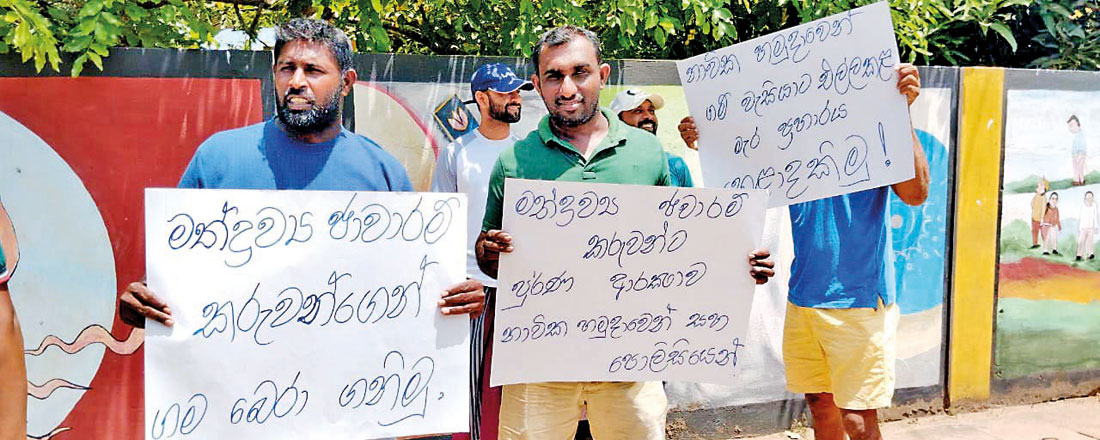 මත්ද්‍රව්‍ය ජාවාරම්
කරුවන්ගෙන්
ගම බේරා ගනිමු.
මත්ද්‍රව්‍ය ජාවාරම්
කරුවන්ට
පූර්ණ ආරක්ෂාව
නාවික හමුදාවෙන් සහ
පොලිසියෙන්
නාවික හමුදාවෙන්
ගම් වැසියාට එල්ලකළ
මැර ප්‍රහාරය
හෙළාදකිමු!